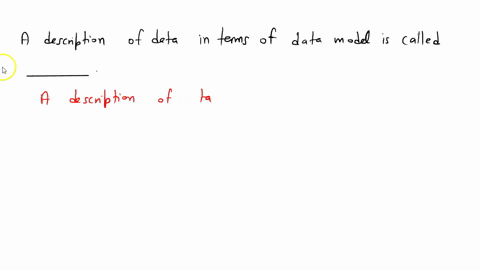 A description of data in terms of data model is called
________.
A description of ta